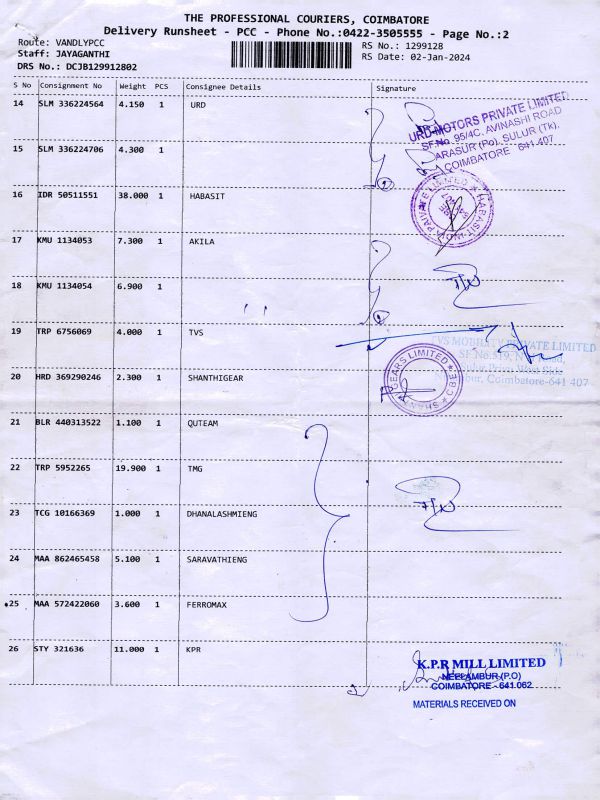 THE PROFESSIONAL COURIERS, COIMBATORE
Delivery Runsheet - PCC - Phone No.:0422-3505555 - Page No.:2
Route: VANDLYPCC
RS No.: 1299128
Staff: JAYAGANTHI
RS Date: 02-Jan-2024
DRS No.: DCJB129912802
S No Consignment No Weight PCS Consignee Details Signature
14 SLM 336224564 4.150 1 URD
URD MOTORS PRIVATE LIMITED
SF.No. 95/4C, AVINASHI ROAD
ARASUR (Po), SULUR (Tk),
COIMBATORE - 641 407
15 SLM 336224706 4.300 1
2
16 IDR 50511551 38.000 1 HABASIT
HABASIT PRIVATE LIMITED
17 KMU 1134053 7.300 1 AKILA
18 KMU 1134054 6.900 1
2
19 TRP 6756069 4.000 1 TVS
TVS MOBILITY PRIVATE LIMITED
SF.No.519,
Coimbatore-641 407
20 HRD 369290246 2.300 1 SHANTHIGEAR
SHANTHI GEARS LIMITED CBE
21 BLR 440313522 1.100 1 QUTEAM
22 TRP 5952265 19.900 1 TMG
23 TCG 10166369 1.000 1 DHANALASHMIENG
24 MAA 862465458 5.100 1 SARAVATHIENG
25 MAA 572422060 3.600 1 FERROMAX
26 STY 321636 11.000 1 KPR
K.P.R MILL LIMITED
NEELAMBUR (P.O)
COIMBATORE - 641 062
MATERIALS RECEIVED ON